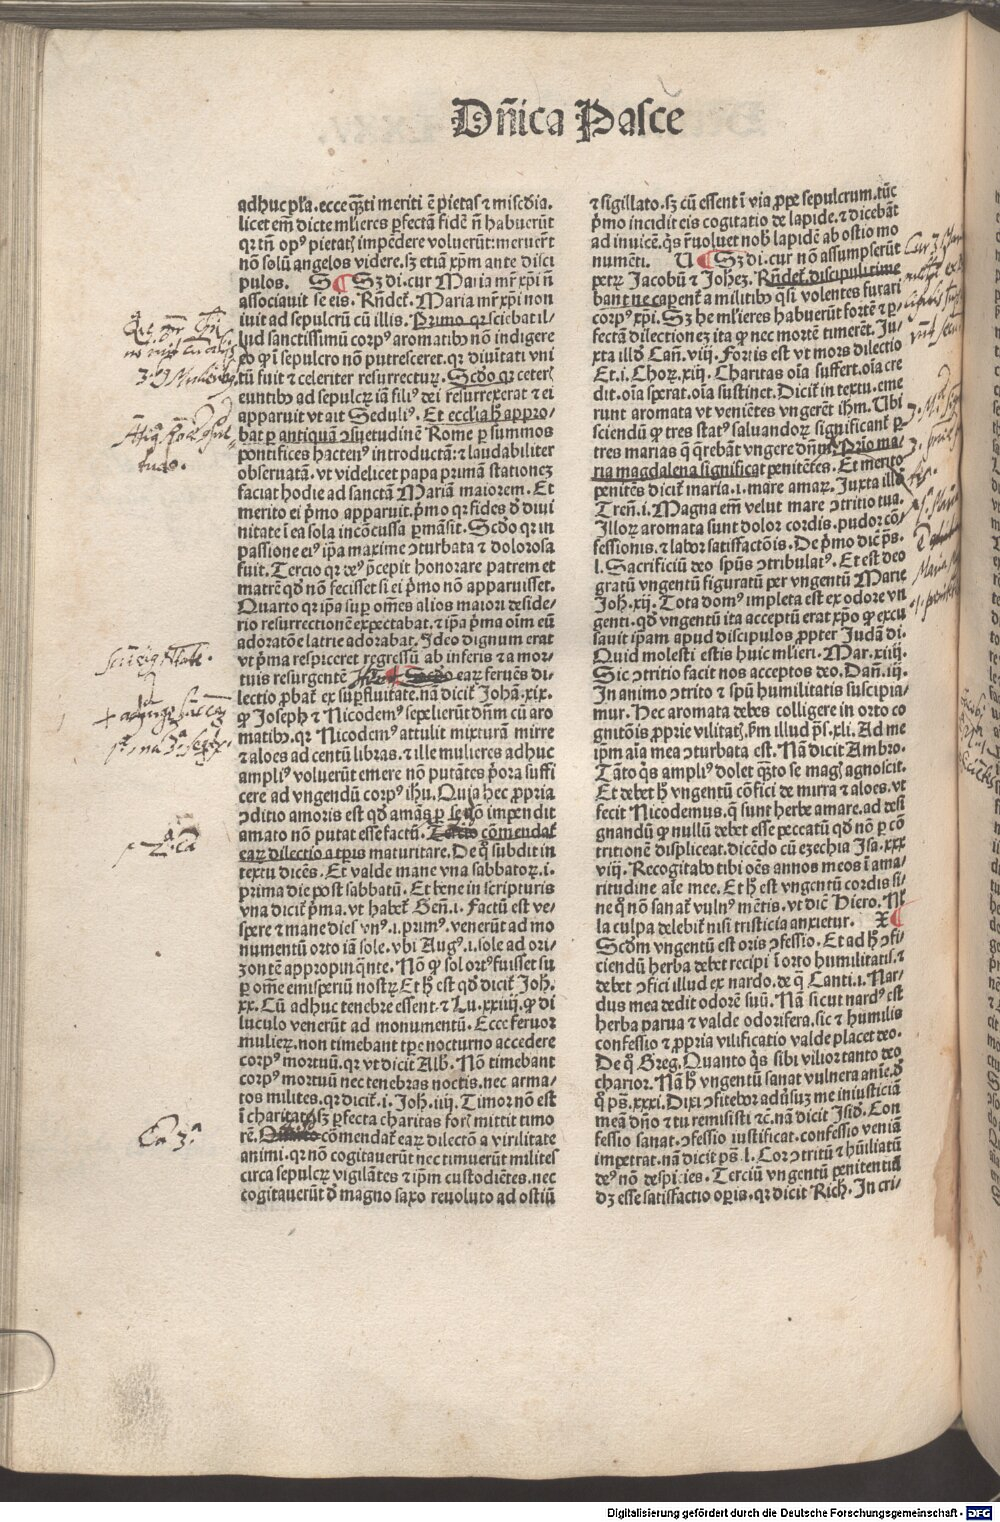 Dñica Pasce
adhuc pl̃a. ecce q̃ꝫti meriti ē pietas ⁊ mĩsc̃dia.
licet em̃ dicte ml̃ieres ꝑfectā fidē ñ habuerūt
qꝛ tñ opꝰ pietatꝭ impēdere voluerūt: meruer̃t
nō solū angelos videre. sꝫ etiā xp̃m ante disci
pulos. S ¶ Sꝫ di. cur Maria mr̃ xp̃i ñ
associauit se eis. Rñdet̃. Maria mr̃ xp̃i non
iuit ad sepulcrū cū illis. Primo qꝛ sciebat il⸗
lud sanctissimū corpꝰ aromatibꝰ nō indigere
eo ꝙ ī sepulcro nō putresceret. qꝛ diuītati vni
tū fuit ⁊ celeriter resurrecturꝫ. Scd̃o qꝛ ceterꝭ
euntibꝰ ad sepulcꝝ ia filiꝰ dei resurrexerat ⁊ ei
apparuit vt ait Seduliꝰ. Et ecclīa hꝫ appro⸗
bat ꝑ antiquā ↄsuetudinē Rome ꝑ summos
pontifices hactenꝰ introductā: ⁊ laudabiliter
obseruatā. vt videlicet papa primā stationeꝫ
faciat hodie ad sanctā Mariā maiorem. Et
merito ei p̃mo apparuit. p̃mo qꝛ fides ð diui
nitate ī ea sola incōcussa ꝑmāsit. Scd̃o qꝛ in
passione eiꝰ ip̃a maxime ↄturbata ⁊ dolorosa
fuit. Tercio qꝛ deꝰ p̃cepit honorare patrem et
matrē qð nō fecisset si ei p̃mo nō apparuisset.
Quarto qꝛ ip̃a suꝑ om̃es alios maiori deside⸗
rio resurrectionē expectabat. ⁊ ip̃a p̃ma oīm eū
adoratōe latrie adorabat. Ideo dignum erat
vt p̃ma respiceret regressū ab inferis ⁊ a mor⸗
tuis resurgentē eaꝝ feruēs di⸗
lectio ꝓbat̃ ex suꝑfluitate. nā dicit̃ Johā. xix.
ꝙ Joseph ⁊ Nicodemꝰ sepelierūt dñm cū aro
matibꝰ. qꝛ Nicodemꝰ attulit mixturā mirre
⁊ aloes ad centū libras. ⁊ ille mulieres adhuc
ampliꝰ voluerūt emere nō putātes p̃ora suffi
cere ad vngendū corpꝰ ih̃u. Quia hec ꝓpria
ↄditio amoris est qð amās ꝑ se ip̃o impendit
amato nō putat esse factū. cōmendat̃
eaꝝ dilectio a tꝑis maturitare. De q̊ subdit in
textu dicēs. Et valde mane vna sabbatoꝝ. i.
prima die post sabbatū. Et bene in scripturis
vna dicit̃ p̃ma. vt habet̃ Geñ. i. Factū est ve⸗
spere ⁊ mane dies vnꝰ. i. primꝰ. venerūt ad mo
numentū orto iā sole. vbi Augꝰ. i. sole ad ori⸗
zontē appropinq̃nte. Nō ꝙ sol ortꝰ fuisset su
ꝑ om̃e emisperiū nostꝝ. Et hꝫ est qð dicit̃ Joh̃.
xx. Cū adhuc tenebre essent. ⁊ Lu. xxiiij. ꝙ di
luculo venerūt ad monumentū. Ecce feruor
mulieꝝ. non timebant tꝑe nocturno accedere
corpꝰ mortuū. qꝛ vt dicit Alb̃. Nō timebant
corpꝰ mortuū nec tenebras noctis. nec arma⸗
tos milites. qꝛ dicit̃. i. Joh̃. iiij. Timor nō est
ī charitate sꝫ ꝑfecta charitas forꝭ mittit timo
rē. cōmendat̃ eaꝝ dilectō a virilitate
animi. qꝛ nō cogitauerūt nec timuerūt milites
circa sepulcꝝ vigilātes ⁊ ip̃m custodiētes. nec
cogitauerūt ð magno saxo reuoluto ad ostiū
⁊ sigillato. sꝫ cū essent ī via ꝓpe sepulcrum. tūc
p̃mo incidit eis cogitatio de lapide. ⁊ dicebāt
ad inuicē. q̇s r̃uoluet nobꝭ lapidē ab ostio mo
numēti. U ¶ Sꝫ di. cur nō assumpserūt
petꝝ Jacobū ⁊ Joh̃eꝫ. Rñdet̃. discipuli time
bant ne capent̃ a militibꝰ q̃si volentes furari
corpꝰ xp̃i. Sꝫ he ml̃ieres habuerūt fortē ⁊ ꝑ⸗
fectā dilectioneꝫ ita ꝙ nec mortē timerēt. Ju⸗
xta illð Cañ. viij. Fortis est vt mors dilectio
Et. i. Choꝝ. xiij. Charitas oīa suffert. oīa cre
dit. oīa sperat. oīa sustinet. Dicit̃ in textu. eme
runt aromata vt veniētes vngerēt ih̃m. Ubi
sciendū ꝙ tres statꝰ saluandoꝝ significant̃ ꝑ
tres marias q̃ q̃rebāt vngere dñm. Prio ma⸗
ria magdalena significat penitētes. Et merito
penitēs dicit̃ maria. i. mare amaꝝ. Juxta illð
Treñ. i. Magna em̃ velut mare ↄtritio tua.
Illoꝝ aromata sunt dolor cordis. pudor cō⸗
fessionis. ⁊ labor satisfactōis. De p̃mo dic̃ ps̃.
l. Sacrificiū deo spūs ↄtribulatꝰ. Et est deo
gratū vngentū figuratū per vngentū Marie
Joh̃. xij. Tota domꝰ impleta est ex odore vn
genti. qð vngentū ita acceptū erat xp̃o ꝙ excu
sauit ip̃am apud discipulos ꝓpter Judā di.
Quid molesti estis huic ml̃ieri. Mar. xiiij.
Sic ↄtritio facit nos acceptos deo. Dañ. iij.
In animo ↄtrito ⁊ spū humilitatis suscipia⸗
mur. Hec aromata debes colligere in orto co
gnitōis ꝓprie vilitatꝭ. ẜm illud ps̃. xli. Ad me
ip̃m aīa mea ↄturbata est. Nā dicit Ambro.
Tāto q̇s ampliꝰ dolet q̃ꝫto se magꝭ agnoscit.
Et debet hꝫ vngentū cōfici de mirra ⁊ aloes. vt
fecit Nicodemus. q̃ sunt herbe amare. ad desi
gnandū ꝙ nullū debet esse peccatū qð nō ꝑ cō
tritionē displiceat. dicēdo cū ezechia Isa. xxx
viij. Recogitabo tibi oēs annos meos ī ama⸗
ritudine aīe mee. Et hꝫ est vngentū cordis si⸗
ne q̊ nō sanat̃ vulnꝰ mētis. vt dic̃ Hiero. Nl̃
la culpa delebit̃ nisi tristicia anxietur. X ¶
Scd̃m vngentū est oris ↄfessio. Et ad hꝫ ↄfi⸗
ciendū herba debet recipi ī orto humilitatis. ⁊
debet ↄfici illud ex nardo. de q̃ Canti. i. Nar⸗
dus mea dedit odorē suū. Nā sicut nardꝰ est
herba parua ⁊ valde odorifera. sic ⁊ humilis
confessio ⁊ ꝓpria vilificatio valde placet deo.
De q̊ Greg. Quanto q̇s sibi vilior tanto deo
charior. Nā hꝫ vngentū sanat vulnera anīe. ð
q̊ ps̃. xxxi. Dixi ↄfitebor aduꝫsuꝫ me iniusticiā
meā dño ⁊ tu remisisti ⁊c̃. nā dicit Isid̃. Con
fessio sanat. ↄfessio iustificat. confessio veniā
impetrat. nā dicit ps̃. l. Cor ↄtritū ⁊ hūiliatū
deꝰ nō despicies. Terciū vngentū penitentiū
dꝫ esse satisfactio oꝑis. qꝛ dicit Rich̃. In cri⸗
Digitalisierung gefördert durch die Deutsche Forschungsgemeinschaft - DFG